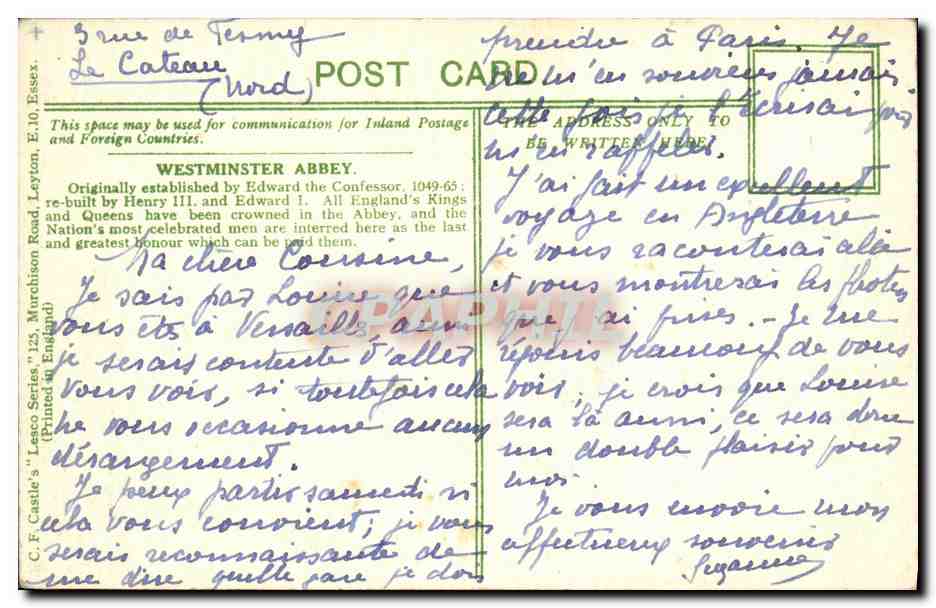 3 rue de
Le Cateau
(Nord)
POST CARD
This space may be used for communication for Inland Postage
and Foreign Countries.
THE ADDRESS ONLY TO
BE WRITTEN HERE
WESTMINSTER ABBEY.
Originally established by Edward the Confessor, 1049-65;
re-built by Henry III. and Edward I. All England's Kings
and Queens have been crowned in the Abbey, and the
Nation's most celebrated men are interred here as the last
and greatest honour which can be paid them.
C. F. Castle's "Lesco Series," 125, Murchison Road, Leyton, E.10, Essex.
(Printed in England)
Ma chère Cousine,
Je sais par Louise que
vous êtes à Versailles, aussi
je serais contente d'aller
vous voir, si toutefois cela
ne vous occasionne aucun
dérangement.
Je peux partir samedi si
cela vous convient; je vous
serais reconnaissante de
me dire quelle gare je dois
prendre à Paris. Je
ne m'en souviens jamais
cette fois je l'écrirai pour
m'en rappeler.
J'ai fait un excellent
voyage en Angleterre
je vous raconterai cela
et vous montrerai les photos
que j'ai prises. - Je me
réjouis beaucoup de vous
voir, je crois que Louise
sera là aussi, ce sera donc
un double plaisir pour
moi.
Je vous envoie mon
affectueux souvenir
Suzanne